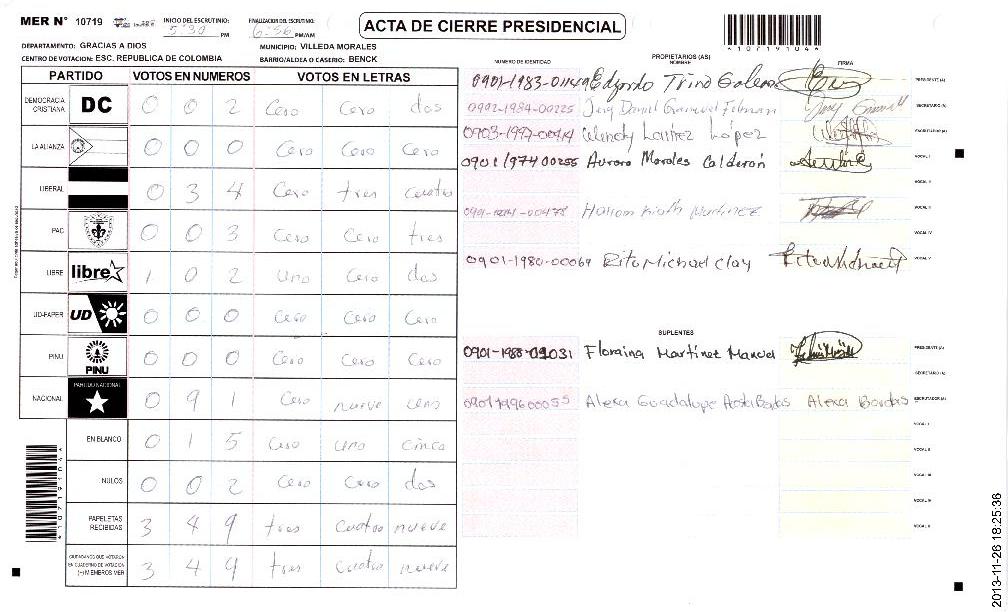 MER N° 10719
INICIO DEL ESCRUTINIO: 5:30 PM
FINALIZACION DEL ESCRUTINIO: 6:56 PM/AM
ACTA DE CIERRE PRESIDENCIAL
*10719104*
DEPARTAMENTO: GRACIAS A DIOS
MUNICIPIO: VILLEDA MORALES
CENTRO DE VOTACION: ESC. REPUBLICA DE COLOMBIA
BARRIO/ALDEA O CASERIO: BENCK
PARTIDO VOTOS EN NUMEROS VOTOS EN LETRAS
DEMOCRACIA CRISTIANA DC 0 0 2 Cero Cero dos
LA ALIANZA 0 0 0 Cero Cero Cero
LIBERAL 0 3 4 Cero tres cuatro
PAC 0 0 3 Cero Cero tres
LIBRE libre 1 0 2 Uno Cero dos
UD-FAPER UD 0 0 0 Cero Cero Cero
PINU PINU 0 0 0 Cero Cero Cero
NACIONAL PARTIDO NACIONAL 0 9 1 Cero nueve
EN BLANCO 0 1 5 Cero uno cinco
NULOS 0 0 2 Cero Cero dos
PAPELETAS RECIBIDAS 3 4 9 tres cuatro nueve
CIUDADANOS QUE VOTARON EN CUADERNO DE VOTACION (+) MIEMBROS MER 3 4 9 tres cuatro nueve
*10719104*
NUMERO DE IDENTIDAD
PROPIETARIOS (AS)
NOMBRE
FIRMA
Edgardo Trino PRESIDENTE (A)
0902-1984-00225 Daniel SECRETARIO (A)
Wendy López ESCRUTADOR (A)
0901197400255 Aurora Morales Calderón VOCAL I
VOCAL II
Martinez VOCAL III
VOCAL IV
0901-1980-00069 Rita Michael Clay VOCAL V
SUPLENTES
Martínez Manuel PRESIDENTE (A)
SECRETARIO (A)
0901199600055 Alexa Guadalupe Alexa Bordas ESCRUTADOR (A)
VOCAL I
VOCAL II
VOCAL III
VOCAL IV
VOCAL V
2013-11-26 18:25:36